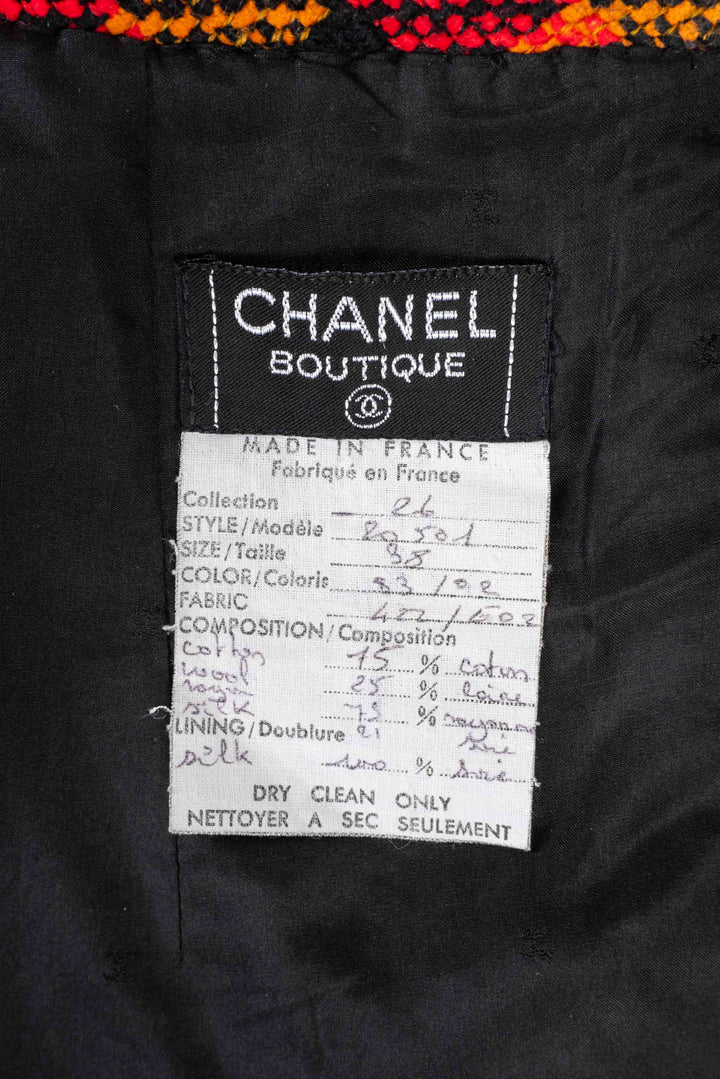 CHANEL
BOUTIQUE
MADE IN FRANCE
Fabriqué en France
Collection 26
STYLE/Modèle 20501
SIZE/Taille 38
COLOR/Coloris 93/02
FABRIC
COMPOSITION/Composition
cotton 75 % coton
wool 25 % laine
silk %
LINING/Doublure 21 soie
silk 100 % soie
DRY CLEAN ONLY
NETTOYER A SEC SEULEMENT